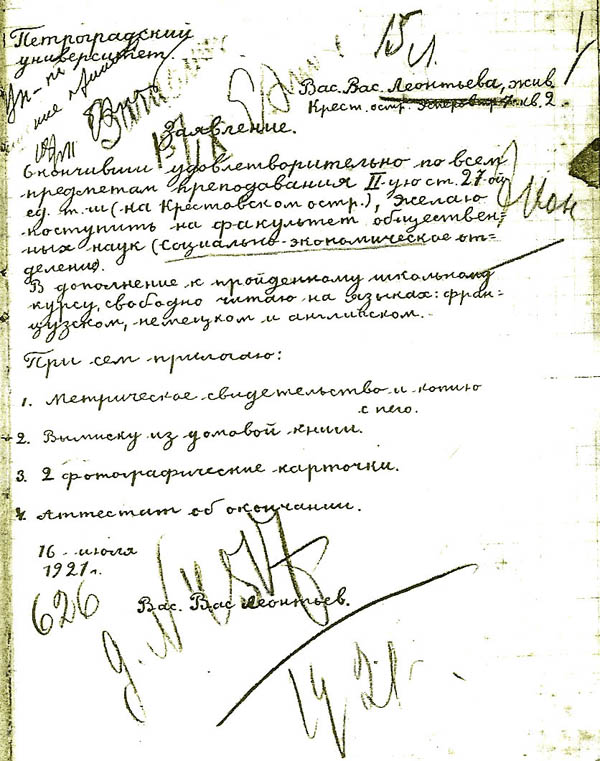 Петроградский
университет.
15 л.
Вас. Вас. Леонтьева, жив.
Крест. остр. кв. 2.
Заявление.
Окончивши удовлетворительно по всем
предметам преподавания II-ую ст. 27 ой
ед. т. ш. (на Крестовском остр.), желаю
поступить на факультет обществен=
ных наук (социально-экономическое от-
деление).
В дополнение к пройденному школьному
курсу, свободно читаю на языках: фран=
цузском, немецком и английском.
При сем прилагаю:
1. Метрическое свидетельство и копию
с него.
2. Выписку из домовой книги.
3. 2 фотографические карточки.
4. Аттестат об окончании.
16 июля
1921 г.
626
Вас. Вас Леонтьев.
1921